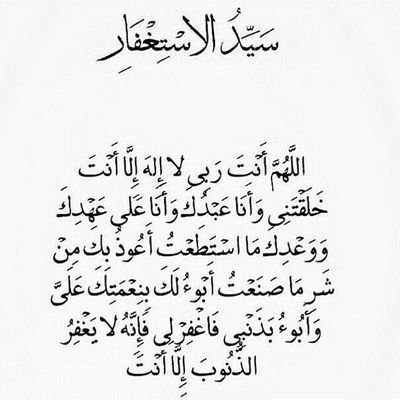 سَيِّدُ الاسْتِغْفَارِ
اللَّهُمَّ أَنْتَ رَبِي لا إِلهَ إِلَّا أَنْتَ
خَلَقْتَنِي وَأَنا عَبْدُكَ وَأَنا عَلى عَهْدِكَ
وَوَعْدِكَ مَا اسْتَطَعْتُ أَعُوذُ بِكَ مِنْ
شَرِ مَا صَنَعْتُ أَبُوءُ لَكَ بِنِعْمَتِكَ عَلَيَّ
وَأَبُوءُ بَذَنْبِي فَاغْفِرْ لِي فَإِنَّهُ لا يَغْفِرُ
الذُّنُوبَ إِلَّا أَنْتَ